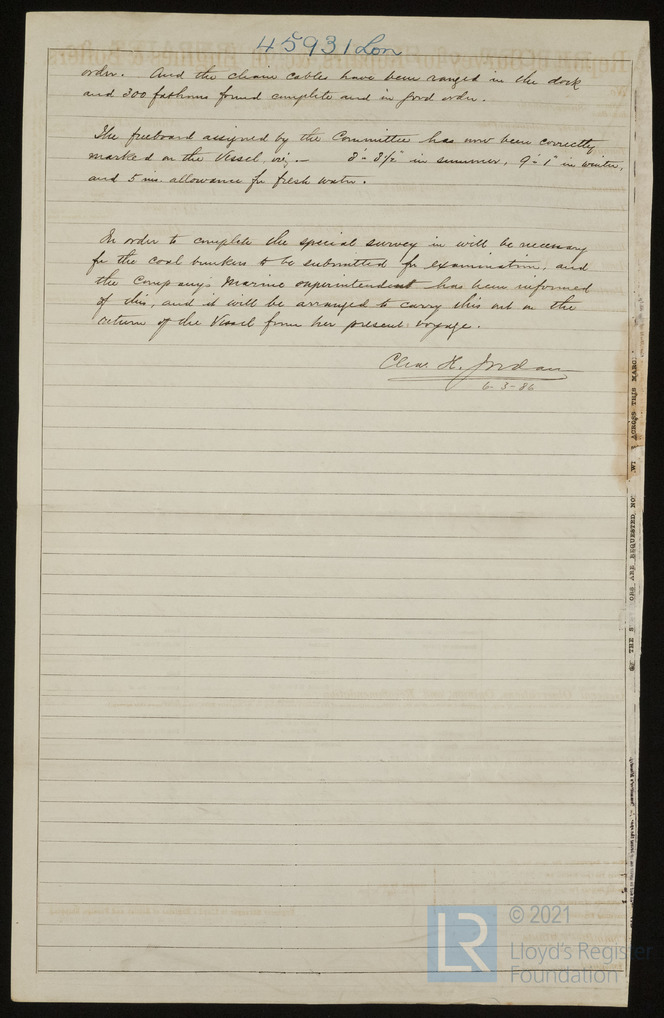 45931 Lon
order. And the chain cables have been ranged in the dock
and 300 fathoms found complete and in good order.
The freeboard assigned by the Committee has now been correctly
marked on the Vessel, viz:- 8'- 3½" in summer, 9'- 1" in winter,
and 5 ins. allowance for fresh water.
In order to complete the special survey in will be necessary
for the coal bunkers to be submitted for examination, and
the Company's Marine superintendent has been informed
of this, and it will be arranged to carry this out on the
return of the Vessel from her present voyage.
Chas H. Jordan
6-3-86
OF THE ARE REQUESTED NOT ACROSS THIS MARG
LR
© 2021
Lloyd's Register
Foundation